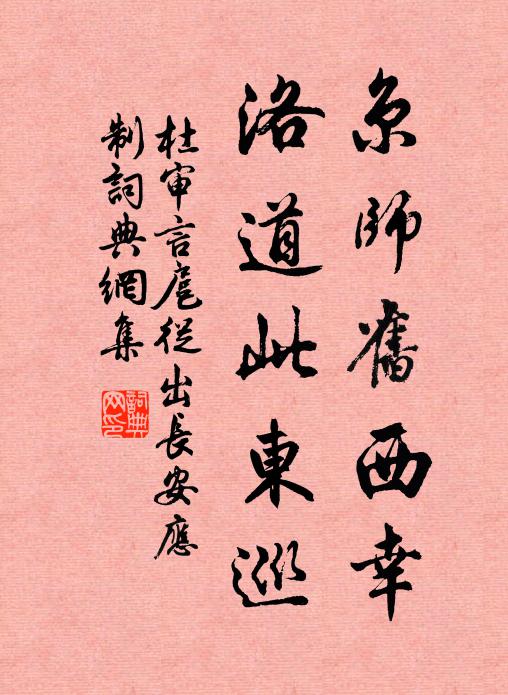 京師舊西幸
洛道此東巡
杜审言扈從出長安應
制詞典網集
詞典網印